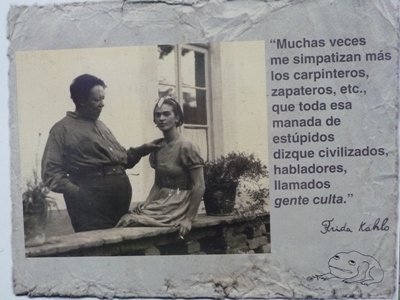 “Muchas veces
me simpatizan más
los carpinteros,
zapateros, etc.,
que toda esa
manada de
estúpidos
dizque civilizados,
habladores,
llamados
gente culta.”
Frida Kahlo